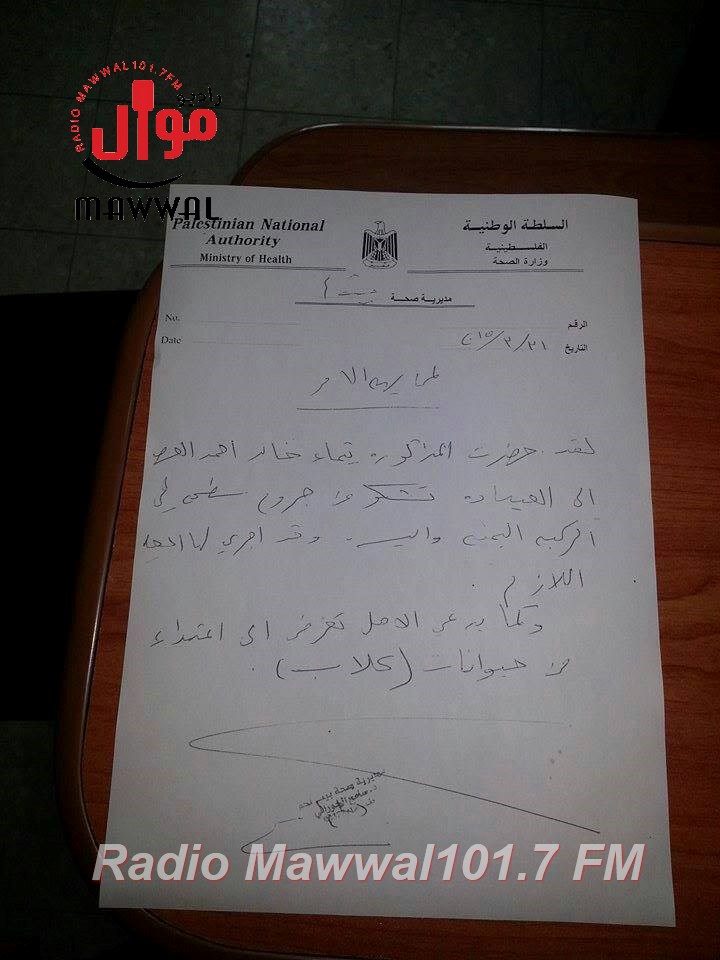 RADIO MAWWAL101.7FM
راديو
موال
MAWWAL
Palestinian National
Authority
Ministry of Health
السلطة الوطنية
الفلسطينية
وزارة الصحة
مديرية صحة
No.
الرقم
Date
التاريخ ٣١/٣/٢٠١٥
لمن يهمه الامر
لقد حضرت المذكوره خالد احمد
الى العياده تشكو من جروح سطحي في
الركبه اليمنى وقد اجري لها
اللازم .
وكما يدعي الاهل تعرض الى اعتداء
من حيوانات (كلاب) .
مديرية صحة بيت لحم
Radio Mawwal101.7 FM